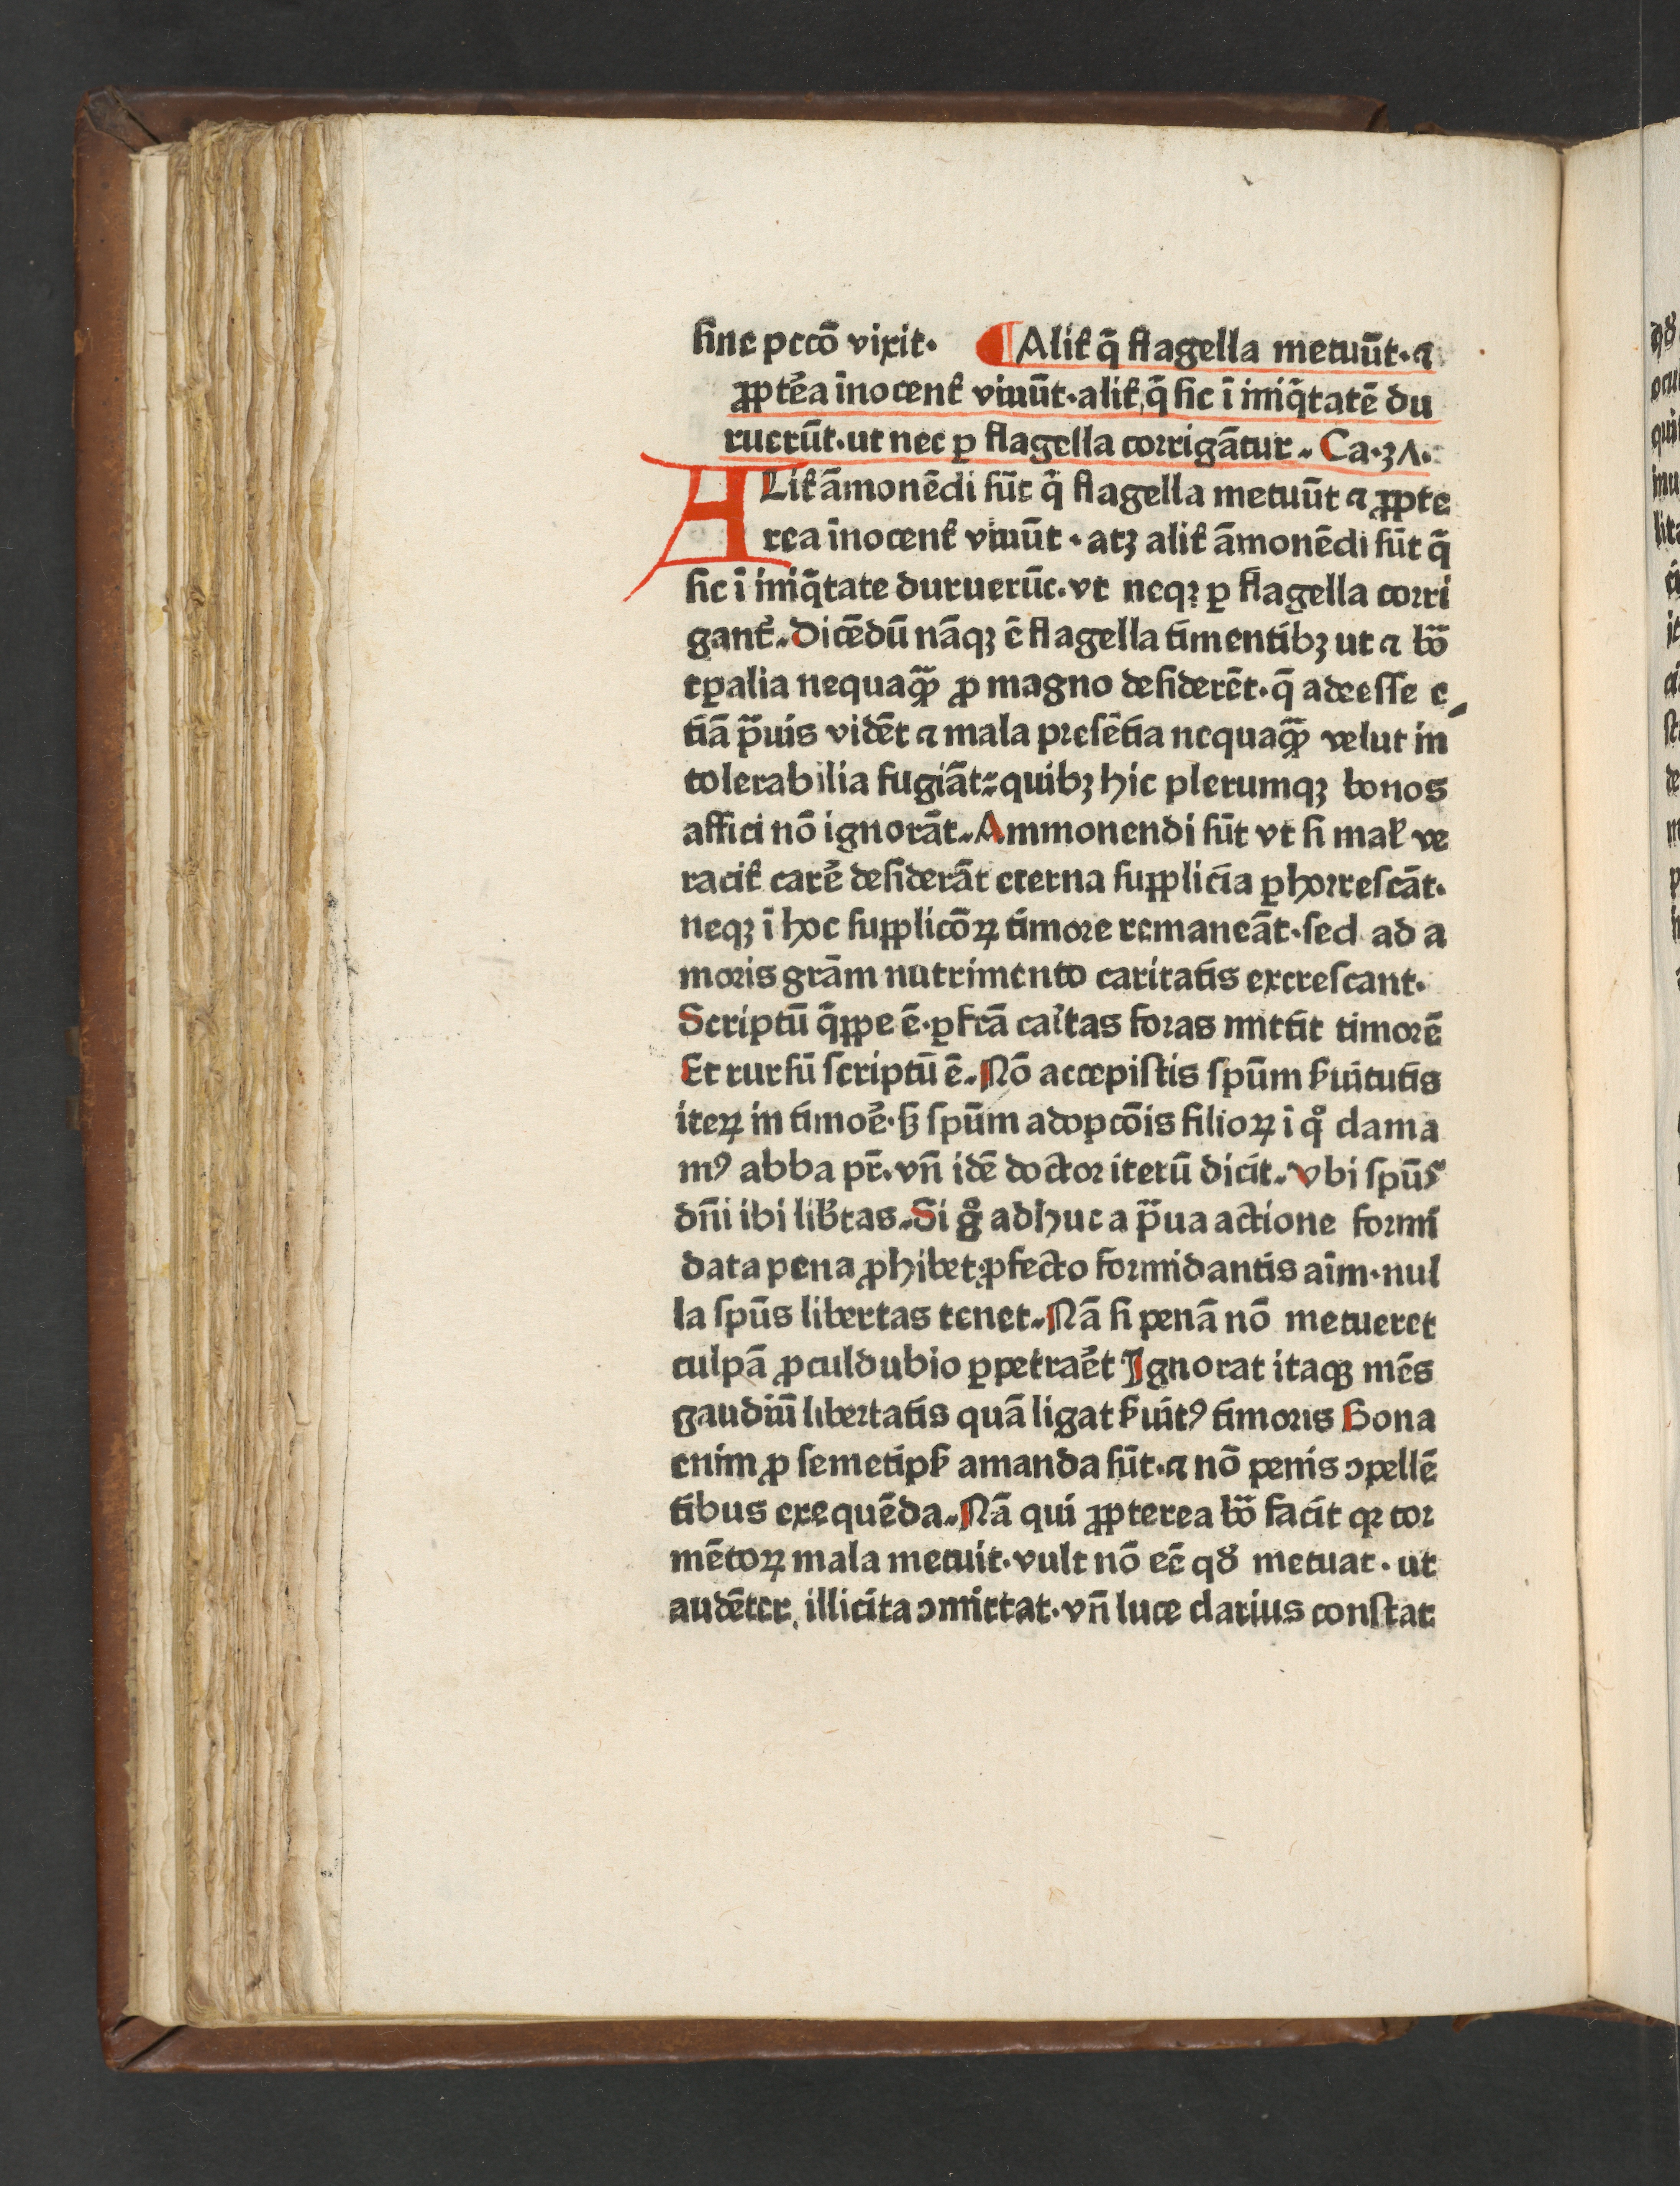 sine pctō vixit· ¶ Alit̄ q̄ flagella metuūt·⁊
ꝓptēa īnocent̄ viuūt·alit̄ q̄ sic ī īniq̄tatē du
ruerūt·ut nec ꝑ flagella corrigātur. Ca·37·
ALit̄ āmonēdi sūt q̄ flagella metuūt ⁊ ꝓpte
rea īnocent̄ viuūt·atꝫ alit̄ āmonēdi sūt q̄
sic ī īniq̄tate duruerūt·vt neqꝫ ꝑ flagella corri
gant̄. Dicēdū nāqꝫ ē flagella timentibꝫ ut ⁊ bō
tꝑalia nequaqꝫ̄ ꝓ magno desiderēt·q̄ adeesse e
tiā p̄uis vidēt ⁊ mala presētia nequaqꝫ̄ velut in
tolerabilia fugiāt: quibꝫ hic plerumqꝫ bonos
affici nō ignorāt. Ammonendi sūt vt si mal̄ ve
racit̄ carē desiderāt eterna supplicia ꝑhorrescāt·
neqꝫ ī hoc supplicōꝝ timore remaneāt·sed ad a
moris grām nutrimento caritatis excrescant·
Scriptū q̄ppe ē·ꝑfcā caītas foras mittit timorē
Et rursū scriptū ē. Nō accepistis spūm ẜuitutis
iteꝝ in timoē·ẜꝫ spūm adopcōis filioꝝ ī qͦ clama
mꝰ abba pr̄·vn̄ idē doctor iterū dicit. Vbi spūs
dn̄i ibi lib̄tas. Si gͦ adhuc a p̄ua actione formi
data pena ꝓhibet: ꝓfecto formidantis aīm·nul
la spūs libertas tenet. Nā si penā nō metueret
culpā ꝓculdubio ꝑpetraēt Ignorat itaqꝫ mēs
gaudiū libertatis quā ligat ẜuitꝰ timoris Bona
enim ꝓ semetipẜ amanda sūt·⁊ nō penis ꝯpellē
tibus exequēda. Nā qui ꝓpterea bō facit qꝛ tor
mētoꝝ mala metuit·vult nō eē qđ metuat·ut
audēter, illicita ꝯmittat·vn̄ luce clarius constat